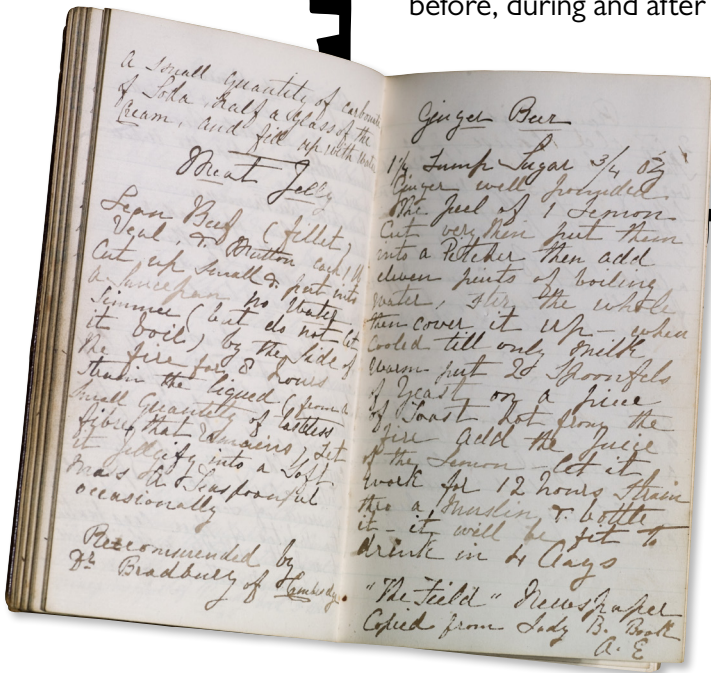 before, during and after
a small quantity of carbonate
of Soda half a glass of the
Cream, and fill up with Water
Meat Jelly
Lean Beef (fillet,)
Veal, & Mutton each 1 lb
Cut up small & put into
a Saucepan no Water,
Simmer (but do not let
it boil) by the side of
the fire for 8 hours
strain the liquid (from a
small Quantity of tasteless
fibre that remains), let
it Jellify into a Soft
mass A Teaspoonful
occasionally
Recommended by
Dr Bradbury of
Ginger Beer
Lump Sugar 3/4 oz
Ginger well pounded
The peel of 1 Lemon
Cut very thin put them
into a Pitcher then add
eleven pints of boiling
water, stir the whole
then cover it up – when
cooled till only milk
warm put 2 Spoonfuls
of Yeast on a piece
of Toast hot from the
fire add the juice
of the Lemon – let it
work for 12 hours strain
thro a Muslin & bottle
it – it will be fit to
drink in 4 days
"The Field" Newspaper
Copied from Lady B. Book
A. E